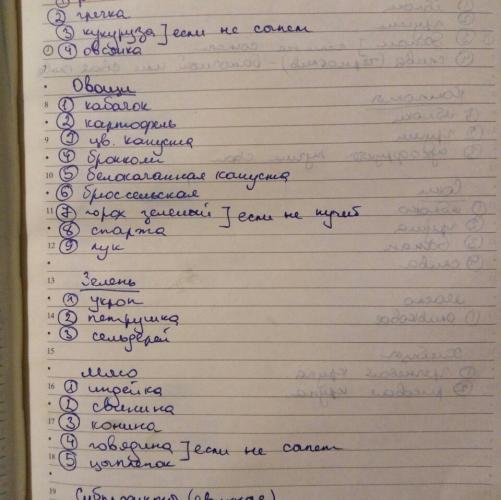 ② гречка
③ кукуруза ] если не сапет
④ овсянка
Овощи
8 ① кабачок
② картофель
9 ③ цв. капуста
④ брокколи
10 ⑤ белокачанная капуста
⑥ брюссельская
11 ⑦ горох зеленый ] если не пучит
⑧ спаржа
12 ⑨ лук
13 Зелень
① укроп
14 ② петрушка
③ сельдерей
15
Мясо
16 ① индейка
② свинина
17 ③ конина
④ говядина ] если не сапет
18 ⑤ цыпленок
19 Субпродукты